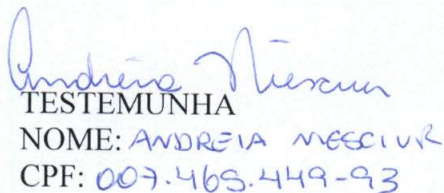 Andréia Mesciur
TESTEMUNHA
NOME: ANDREIA MESCIUR
CPF: 007.469.449-93